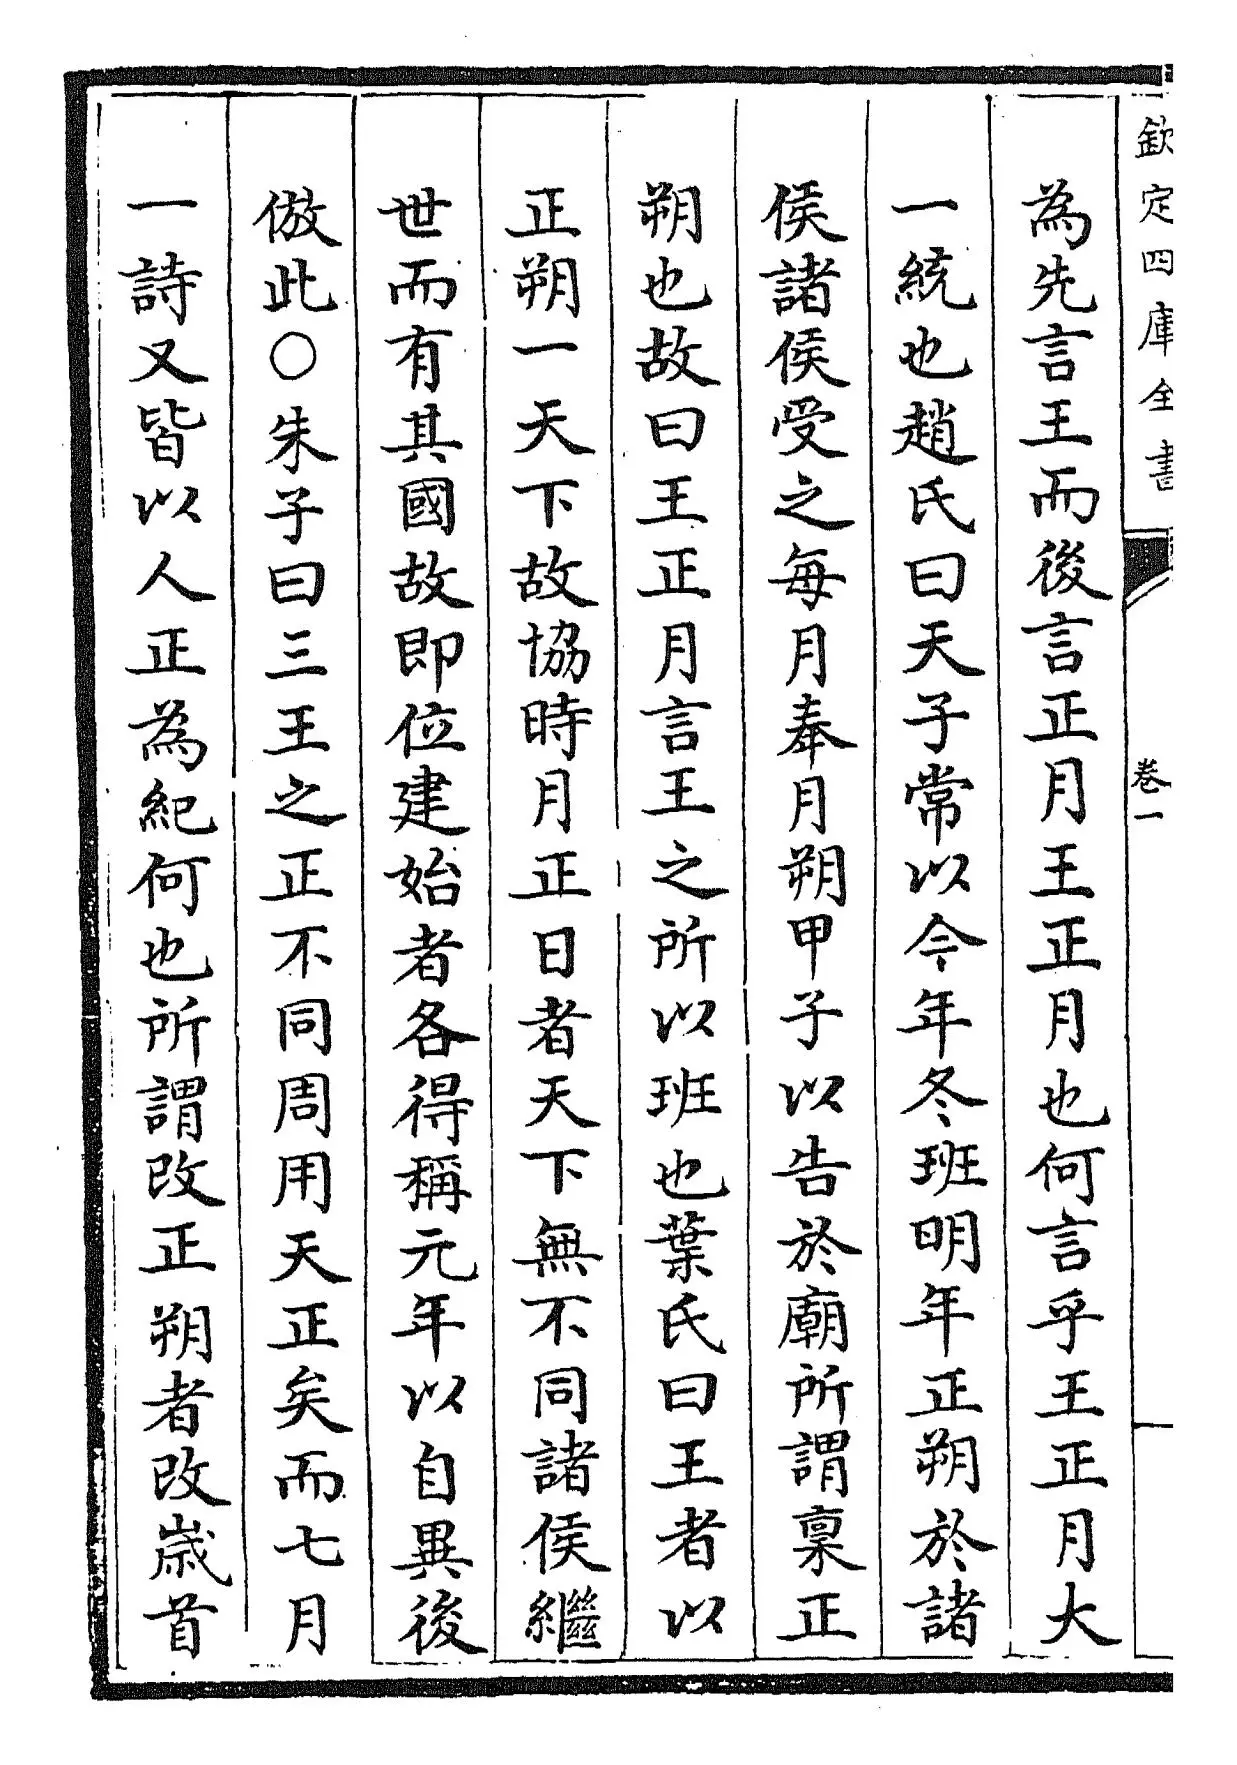 欽定四庫全書
卷一
為先言王而後言正月王正月也何言乎王正月大
一統也趙氏曰天子常以今年冬班明年正朔於諸
侯諸侯受之每月奉月朔甲子以告於廟所謂稟正
朔也故曰王正月言王之所以班也葉氏曰王者以
正朔一天下故協時月正日者天下無不同諸侯繼
世而有其國故即位建始者各得稱元年以自異後
倣此○朱子曰三王之正不同周用天正矣而七月
一詩又皆以人正為紀何也所謂改正朔者改歲首